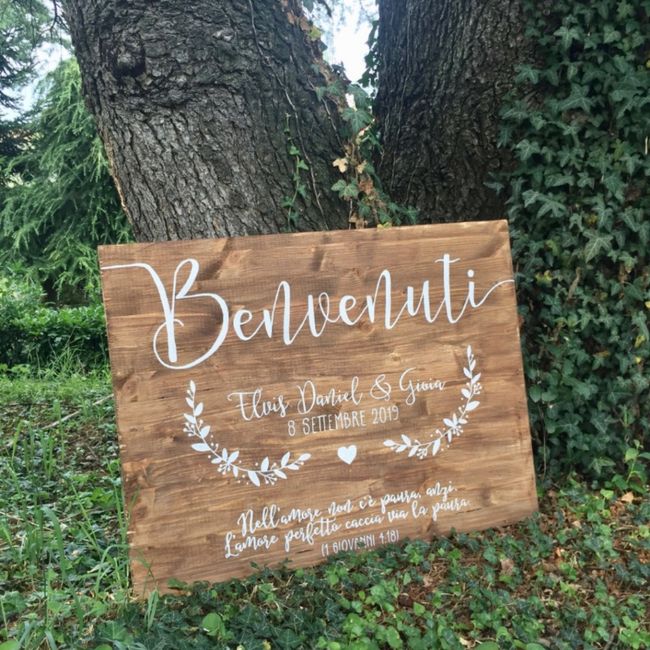 Benvenuti
Elvis Daniel & Gioia
8 SETTEMBRE 2019
Nell'amore non c'è paura, anzi,
L'amore perfetto caccia via la paura.
(1 GIOVANNI 4:18)